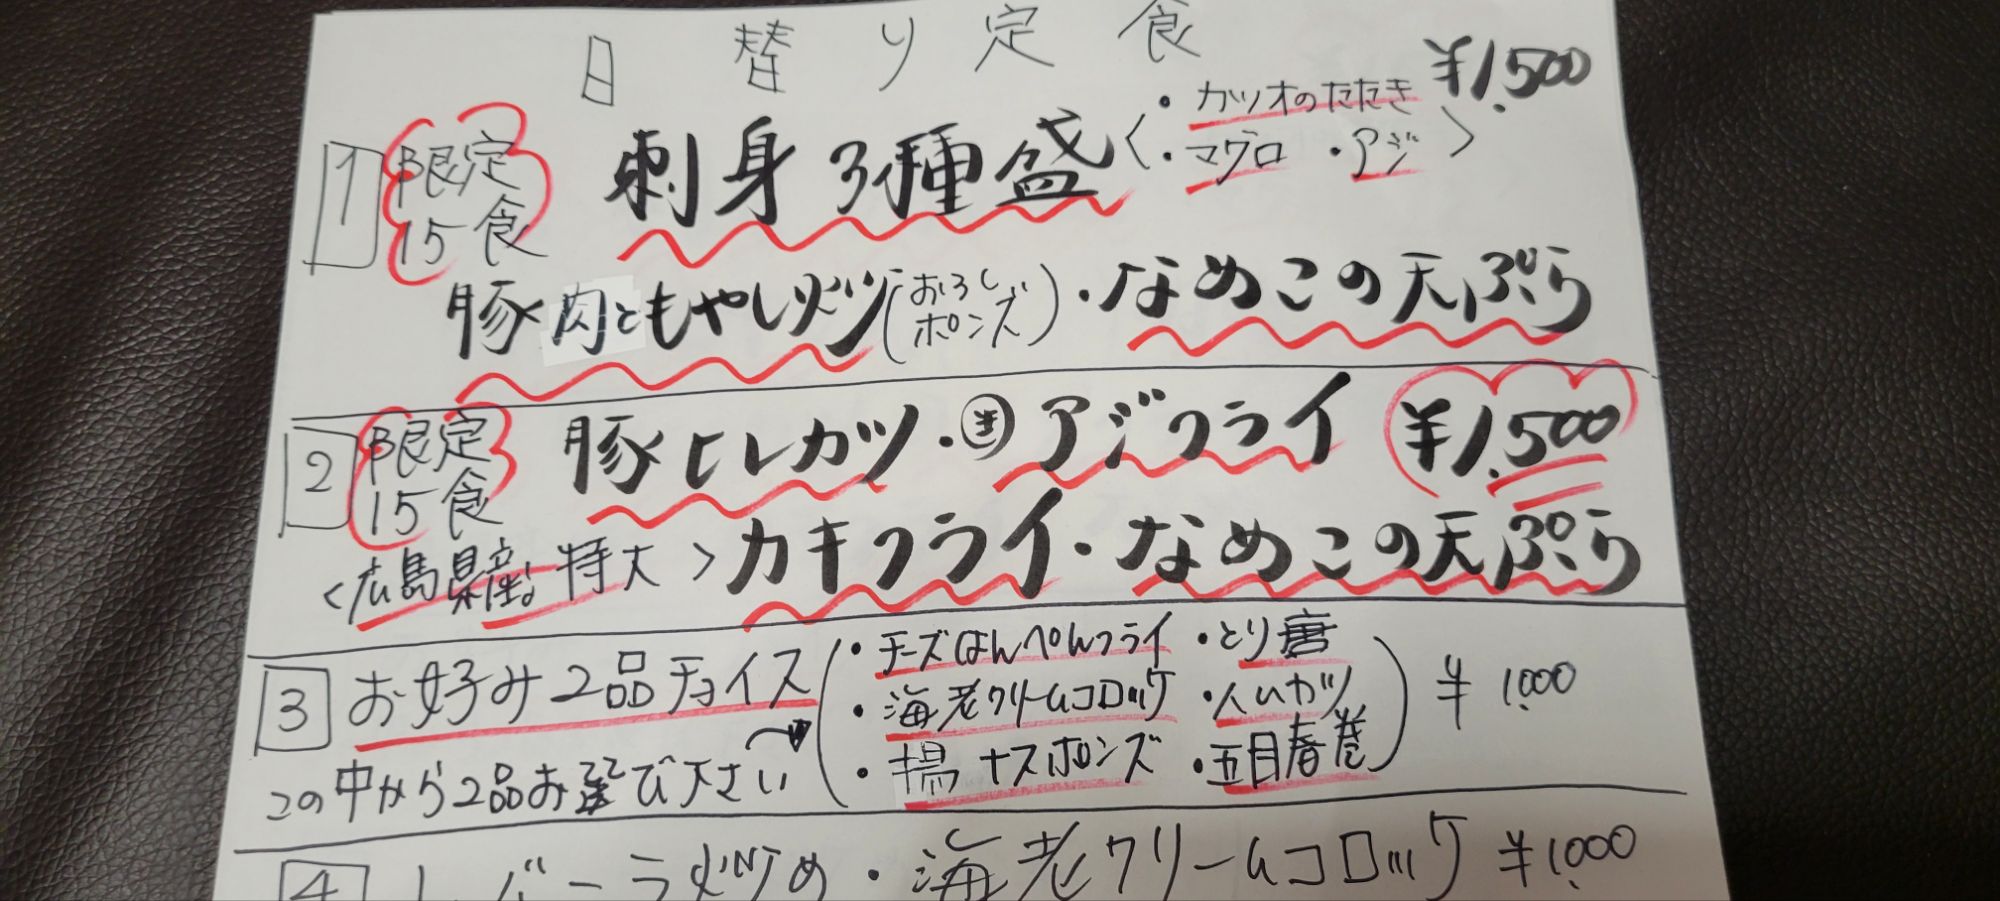 日替り定食
1 限定15食 刺身3種盛 〈・カツオのたたき ・マグロ ・アジ〉 ¥1,500
豚肉ともやし炒ツ(おろしポンズ)・なめこの天ぷら
2 限定15食 豚ヒレカツ・㊌アジフライ ¥1,500
〈広島県産 特大〉カキフライ・なめこの天ぷら
3 お好み2品チョイス (・チーズはんぺんフライ ・とり唐 ¥1,000
・海老クリームコロッケ ・ハムカツ
この中から2品お選び下さい ・揚ナスポンズ ・五目春巻)
4 レバーニラ炒め・海老クリームコロッケ ¥1,000